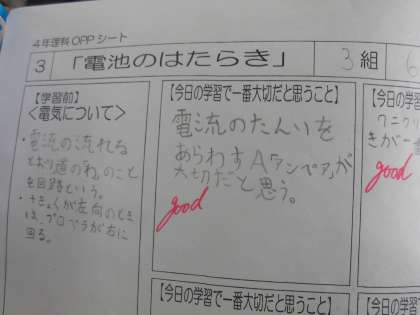 4年理科OPPシート
3 「電池のはたらき」 3組 6
【学習前】
〈電気について〉
・電流の流れる
とおり道の「わ」のこと
を回路という。
・+きょくが左向のとき
は、プロペラが右に
回る。
【今日の学習で一番大切だと思うこと】
電流のたんいを
あらわすA「アンペア」が
大切だと思う。
good
【今日の学
ワニクリ
きが一番
good
【今日の学習で一番大切だと思うこと】
【今日の学